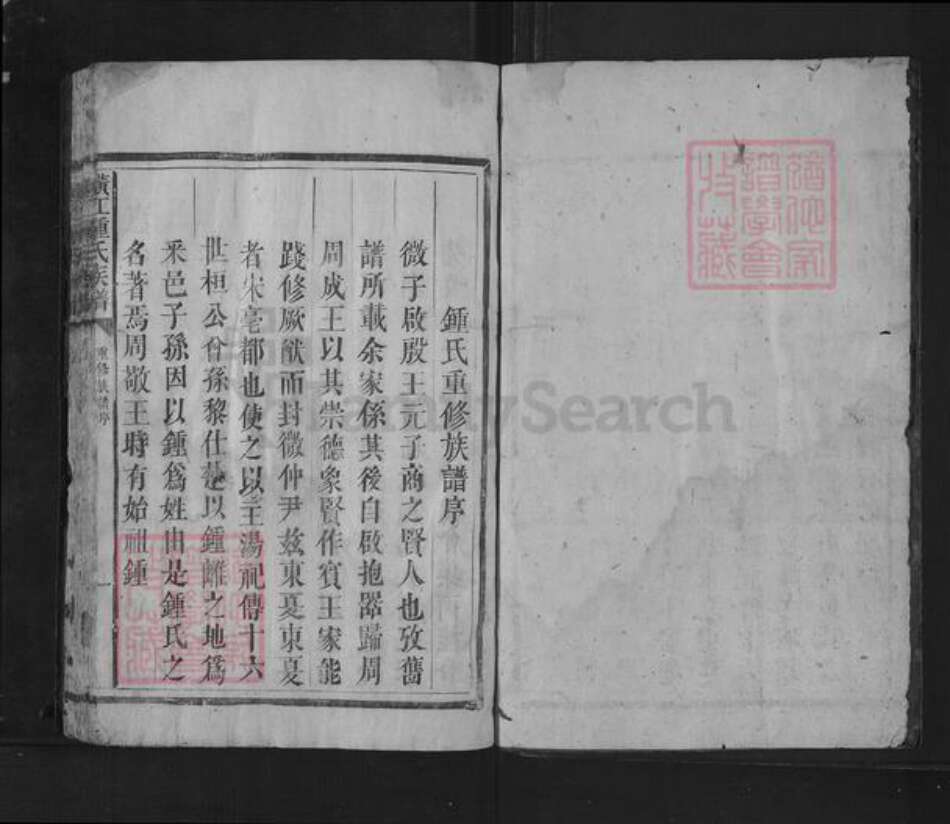 鍾氏重修族譜序
微子啟殷王元子商之賢人也攷舊
譜所載余家係其後自啟抱器歸周
周成王以其崇德象賢作賓王家能
踐修厥猷而封微仲尹兹東夏東夏
者宋亳都也使之以主湯祀傳十六
世桓公曾孫黎仕楚以鍾離之地爲
釆邑子孫因以鍾爲姓由是鍾氏之
名著焉周敬王時有始祖鍾
潢江鍾氏族譜
重修族譜序
一
譜學會
收藏
FamilySearch